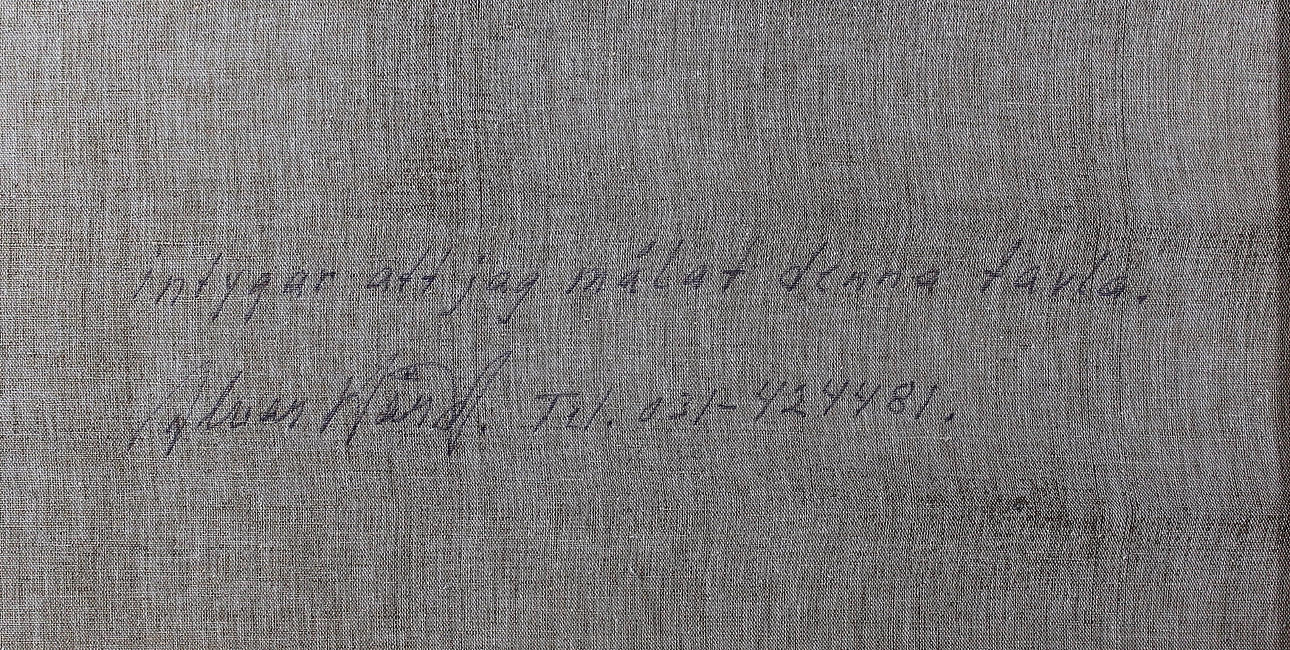 intygar att jag målat denna tavla.
Tel. 031-424481.